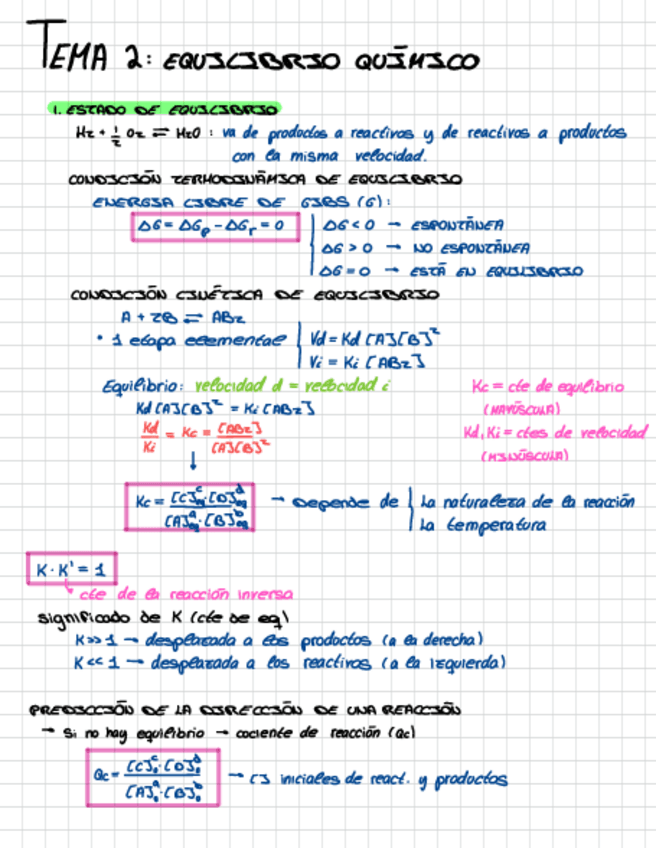 TEMA 2: EQUILIBRIO QUÍMICO
1. ESTADO DE EQUILIBRIO
H₂ + 1/2 O₂ ⇌ H₂O : va de productos a reactivos y de reactivos a productos
con la misma velocidad.
CONDICIÓN TERMODINÁMICA DE EQUILIBRIO
ENERGIA LIBRE DE GIBS (G):
ΔG = ΔGp - ΔGr = 0 | ΔG < 0 → ESPONTÁNEA
ΔG > 0 → NO ESPONTÁNEA
ΔG = 0 → ESTÁ EN EQUILIBRIO
CONDICIÓN CINÉTICA DE EQUILIBRIO
A + 2B ⇌ AB₂
• 1 etapa elemental | Vd = Kd [A][B]²
Vi = Ki [AB₂]
Equilibrio: velocidad d = velocidad i
Kc = cte de equilibrio
(MAYÚSCULA)
Kd [A][B]² = Ki [AB₂]
Kd, Ki = ctes de velocidad
(MINÚSCULA)
Kd/Ki = Kc = [AB₂]/[A][B]²
↓
Kc = [C]ᶜeq·[D]ᵈeq / [A]ᵃeq·[B]ᵇeq → Depende de | La naturaleza de la reacción
La temperatura
K · K' = 1
cte de la reacción inversa
significado de K (cte de eq)
K >> 1 → desplazada a los productos (a la derecha)
K << 1 → desplazada a los reactivos (a la izquierda)
PREDICCIÓN DE LA DIRECCIÓN DE UNA REACCIÓN
→ Si no hay equilibrio → cociente de reacción (Qc)
Qc = [C]ᶜ₀·[D]ᵈ₀ / [A]ᵃ₀·[B]ᵇ₀ → [] iniciales de react. y productos